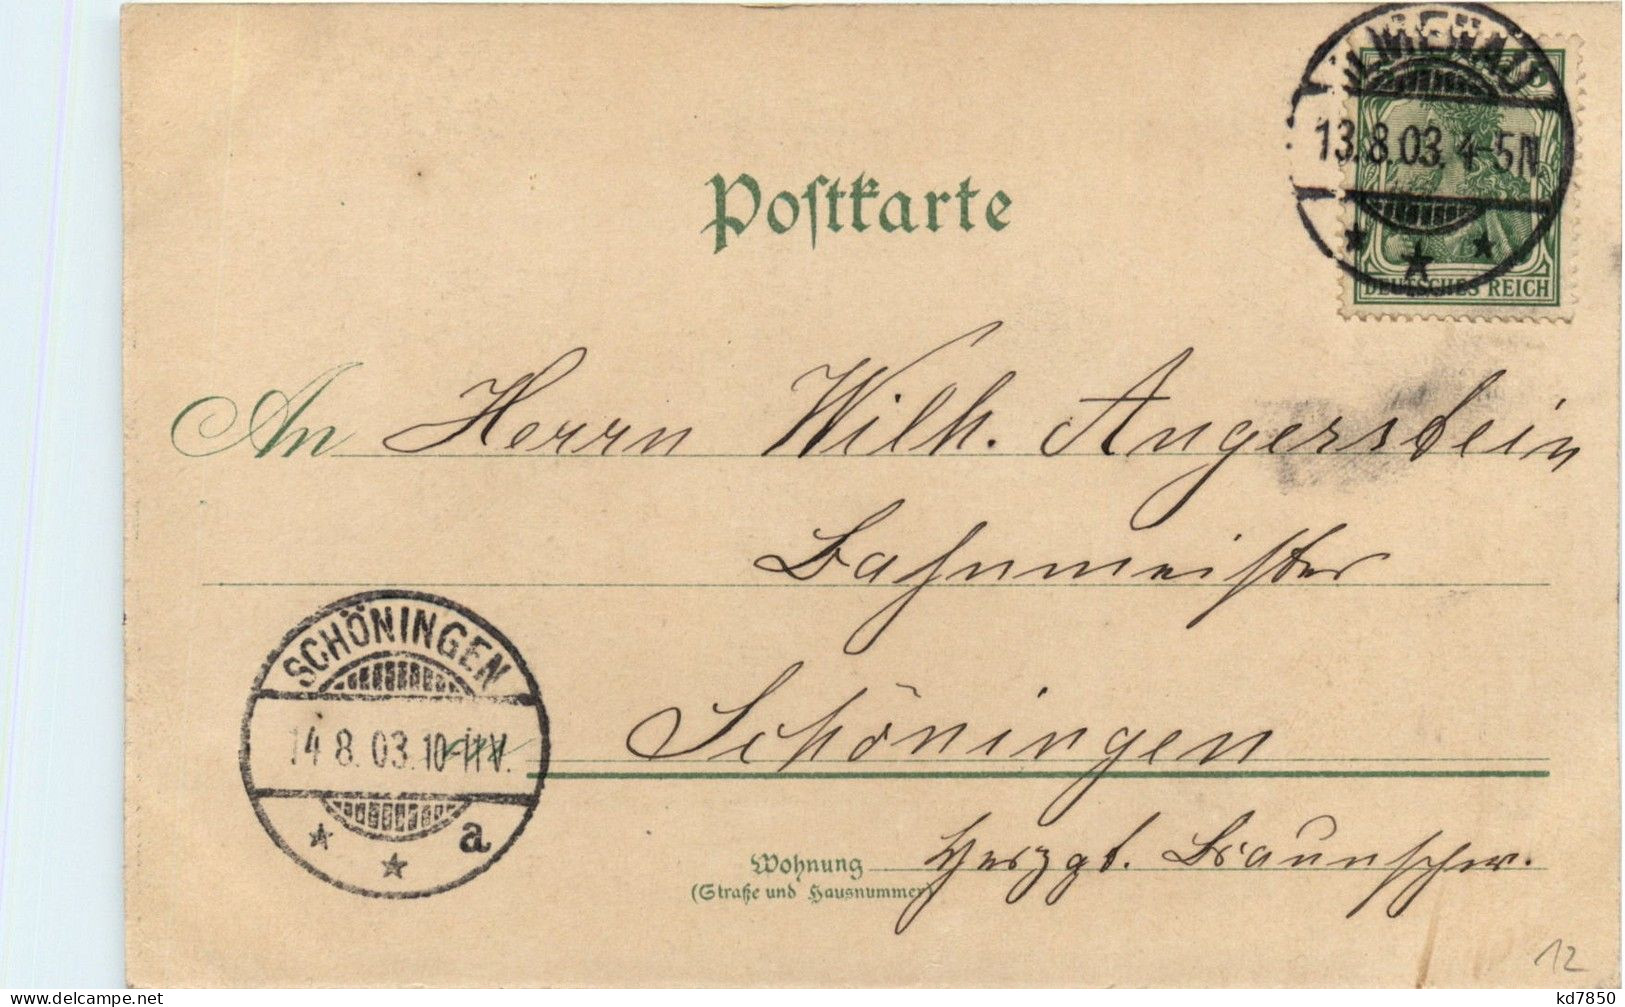 ILMENAU
13.8.03. 4-5N
DEUTSCHES REICH
Postkarte
An Herrn Wilh. Angerstein
Bahnmeister
Schöningen
SCHÖNINGEN
14.8.03. 10-11V.
a
Wohnung Herzgt. Braunschw.
(Straße und Hausnummer)
12
delcampe.net
kd7850